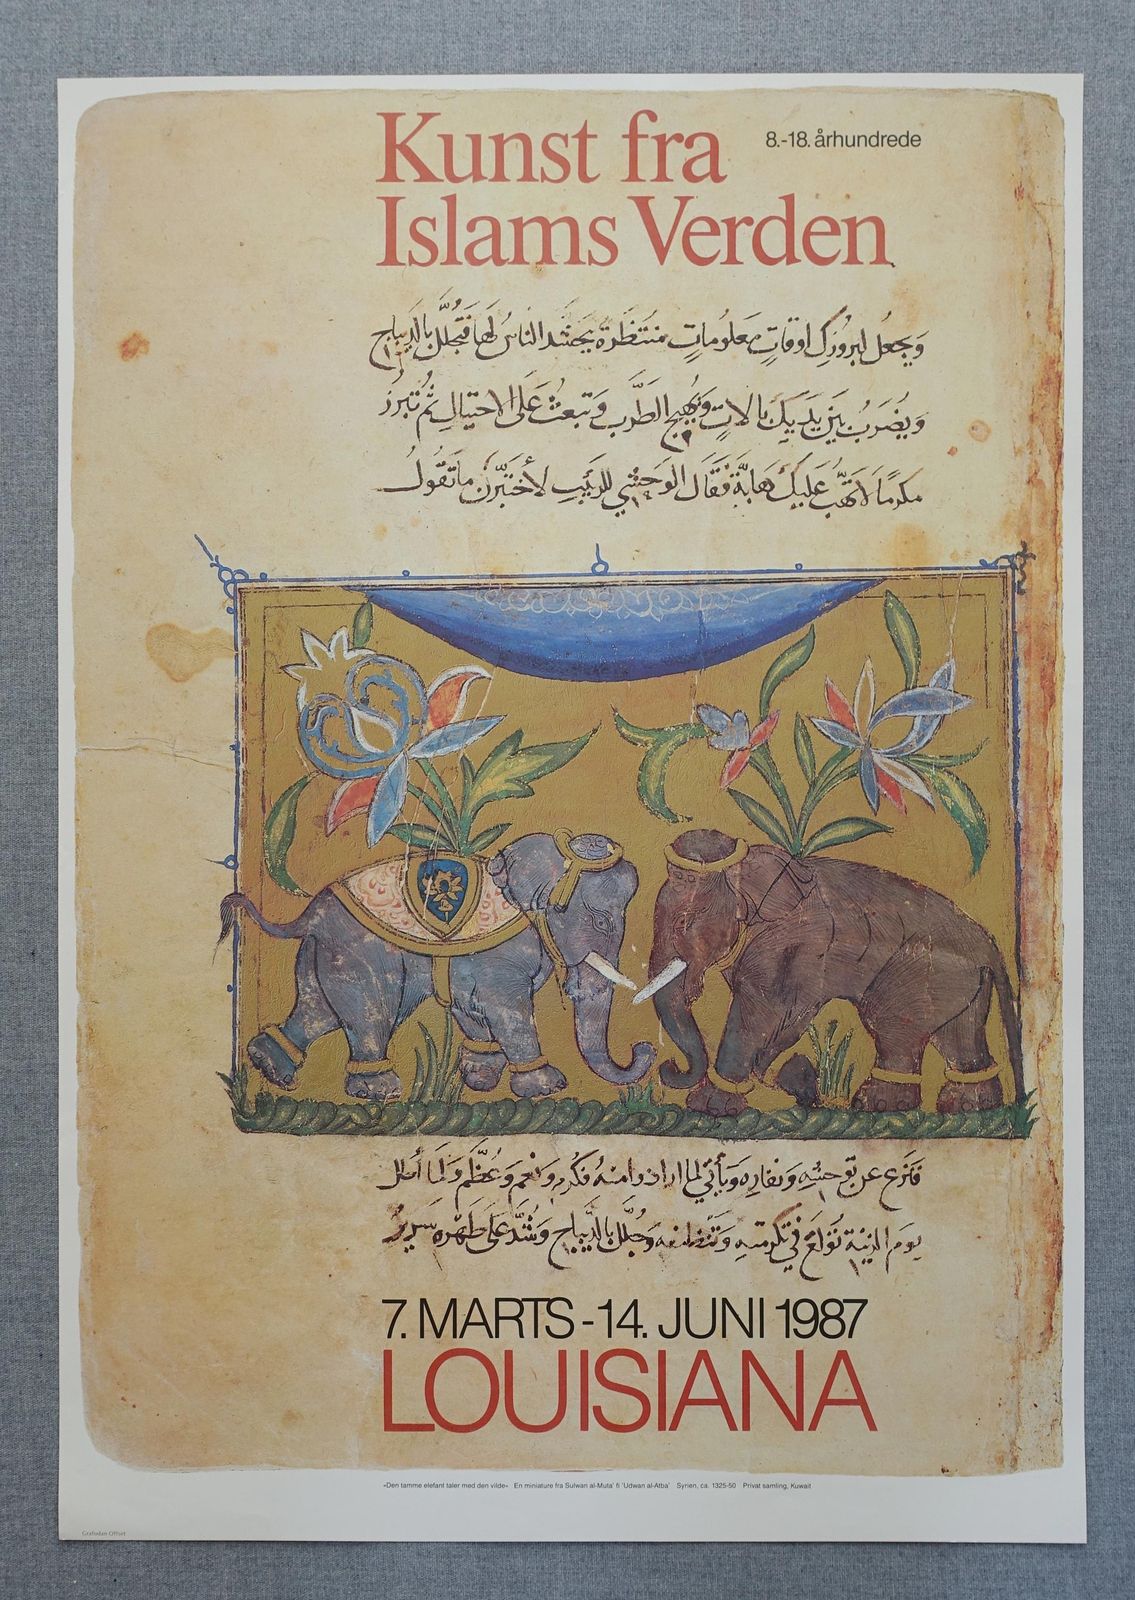 Kunst fra
8.-18. århundrede
Islams Verden
وَيجعُل لبروزك اوقاتٍ معلومات منتظَرة يحتشد الناسُ لها فتجلل بالديباج
وَيُضرَبُ بين يديك بالات وَيُهيج الطَرب وَتبعث عَلى الاختيال ثم تبرز
مكرمًا لا تهب عليك هابة فقال الوَحشي للربيب لأختبرن ما تقول
فنزع عن توحشه وَنفاره وَيأتي لما اراد وامنه فكرم وَنعم وَعُظم وَلما أطل
يوم الزينة تولع في تكرمته وَتنظيفه وَجلل بالديباج وَشُدَّ عَلى ظهره سرير
7. MARTS - 14. JUNI 1987
LOUISIANA
«Den tamme elefant taler med den vilde» En miniature fra Sulwan al-Muta' fi 'Udwan al-Atba' Syrien, ca. 1325-50 Privat samling, Kuwait
Grafodan Offset